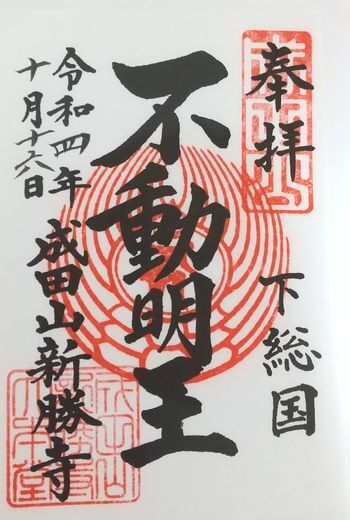 奉拝
下総国
不動明王
令和四年
十月十六日
成田山新勝寺